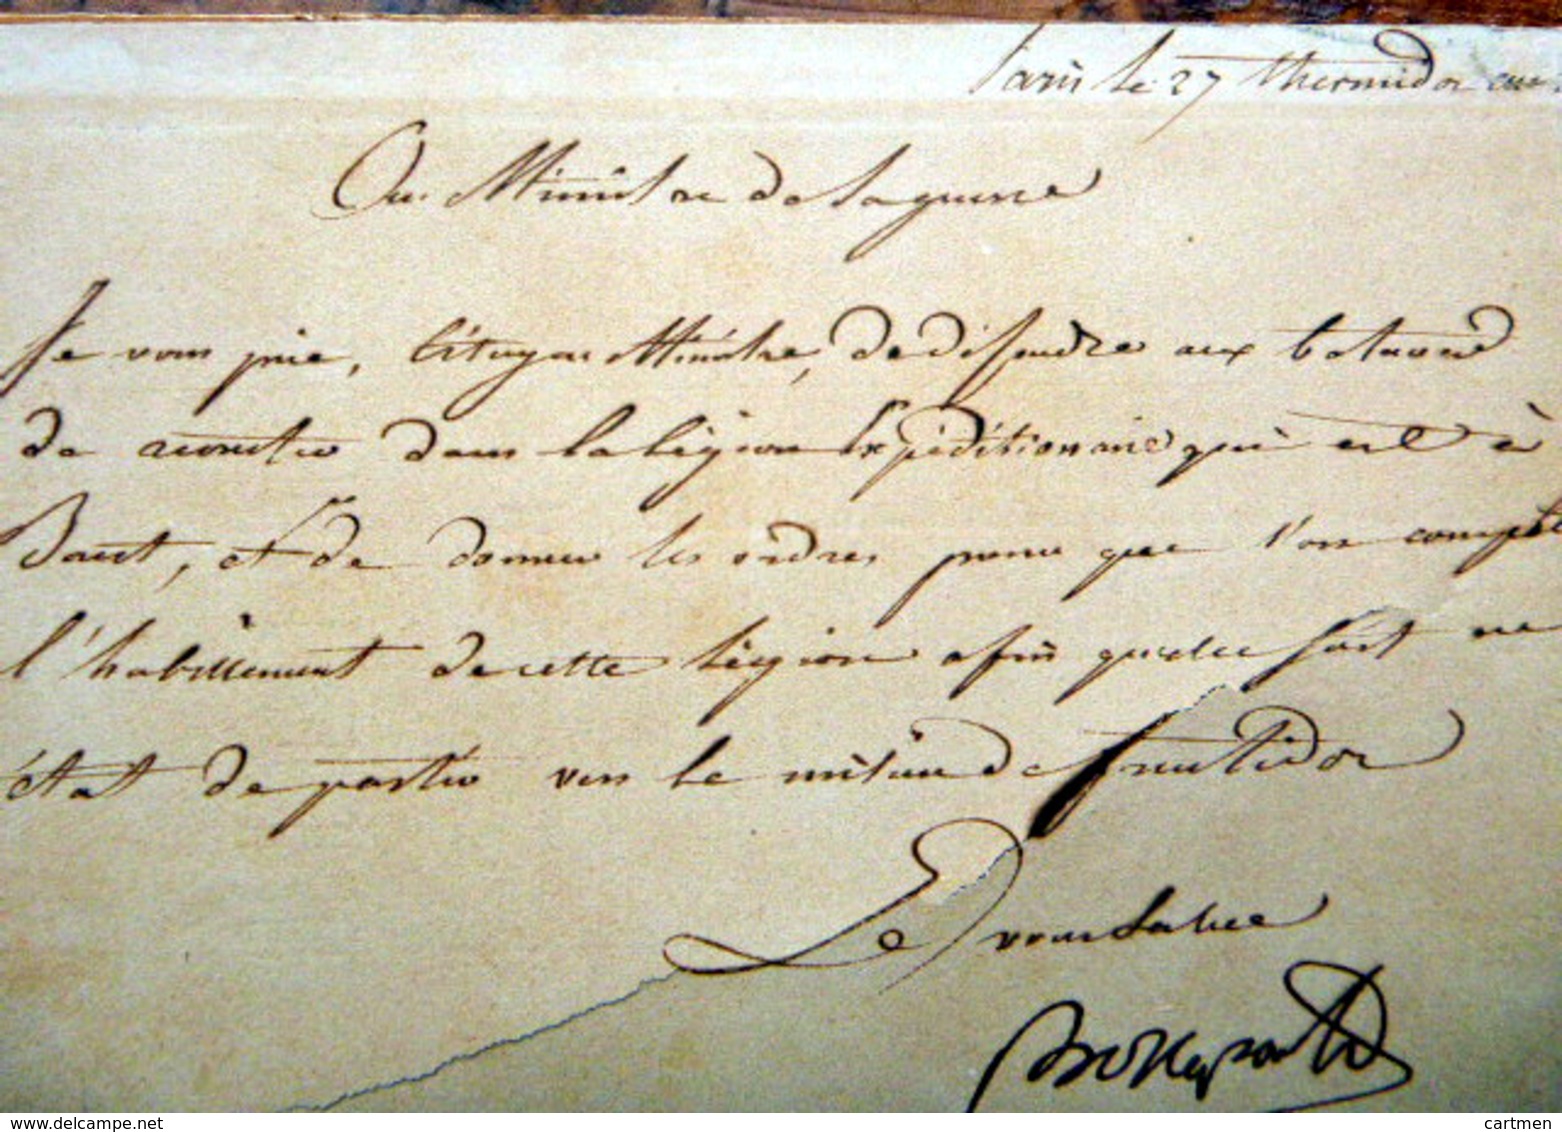 Paris le 27 thermidor an
Au Ministre de la guerre
Je vous prie, Citoyen Ministre, de défendre aux bataves
de recruter dans la légion Expéditionnaire qui est à
et de donner les ordres pour que l'on complète
l'habillement de cette légion afin qu'elle soit en
état de partir vers le milieu de fructidor
Je vous salue
Bonaparte
www.delcampe.net
cartmen